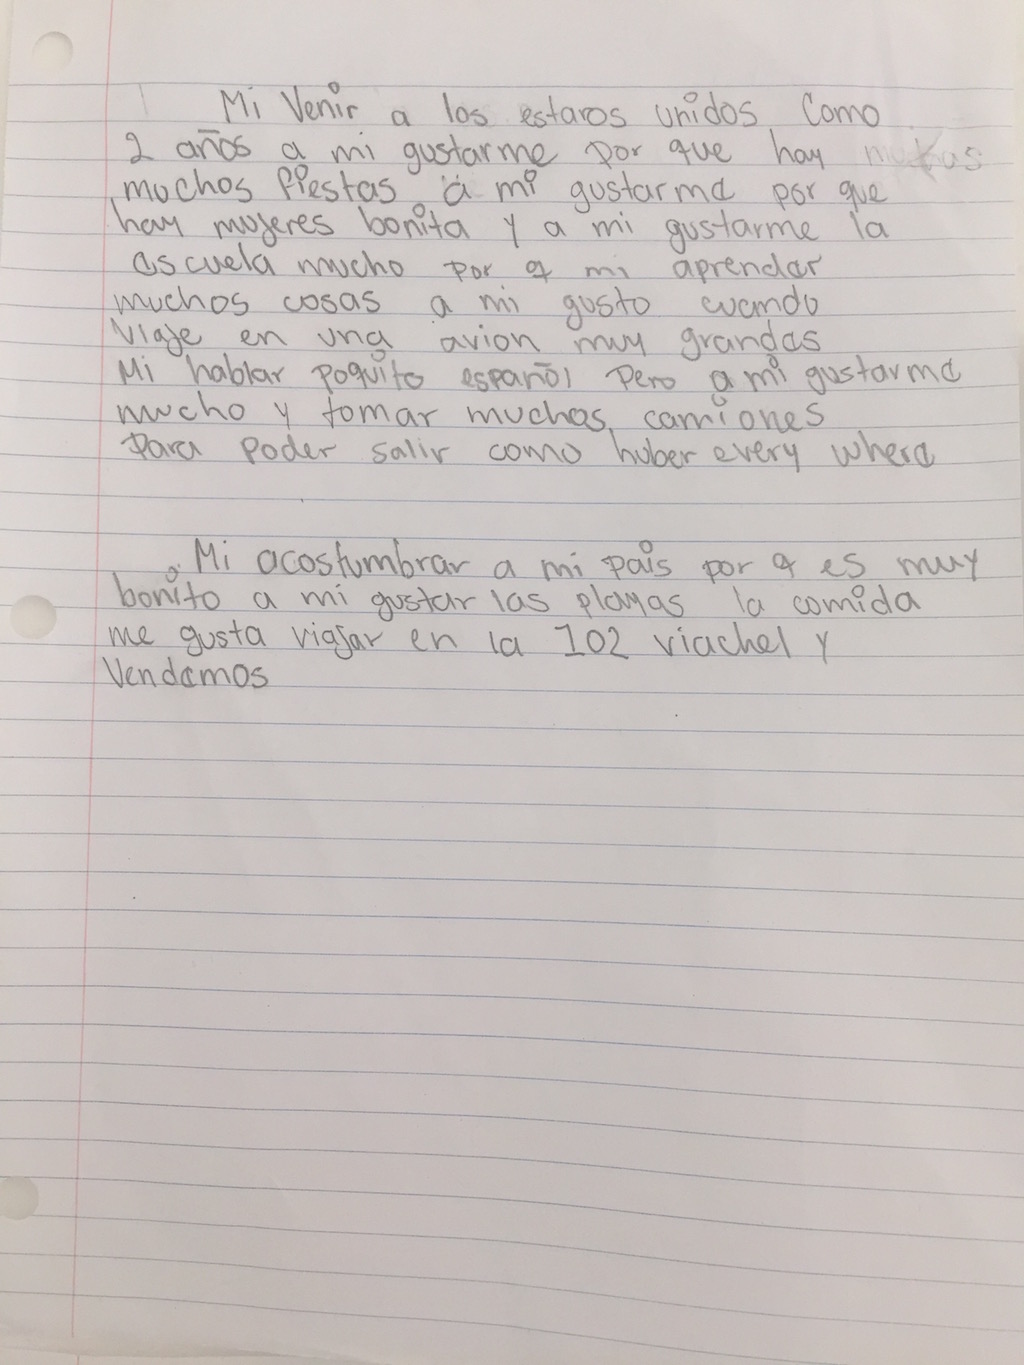 Mi Venir a los estaros unidos Como
2 años a mi gustarme por que hay
muchos fiestas a mi gustarme por que
hay mujeres bonita y a mi gustarme la
escuela mucho por q mi aprender
muchos cosas a mi gusto cuando
viaje en una avion muy grandes
Mi hablar poquito español pero a mi gustarme
mucho y tomar muchos camiones
para poder salir como huber every where
Mi acostumbrar a mi pais por q es muy
bonito a mi gustar las playas la comida
me gusta viajar en la 102 viachel y
Vendemos